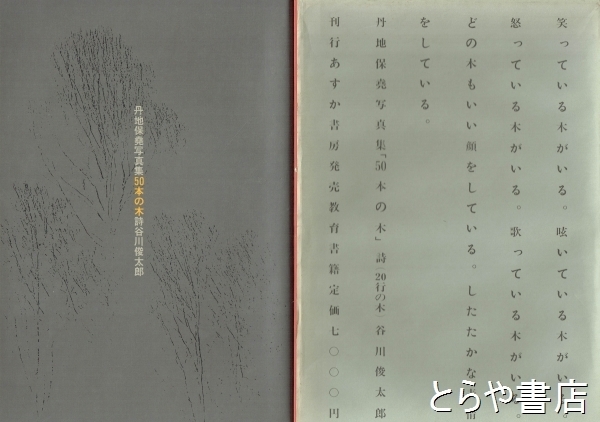 丹地保堯写真集50本の木詩谷川俊太郎
笑っている木がいる。呟いている木がいる。
怒っている木がいる。歌っている木がいる。
どの木もいい顔をしている。したたかな
をしている。
丹地保堯写真集「50本の木」詩〈20行の木〉谷川俊太郎
刊行あすか書房発売教育書籍定価七〇〇〇円
とらや書店